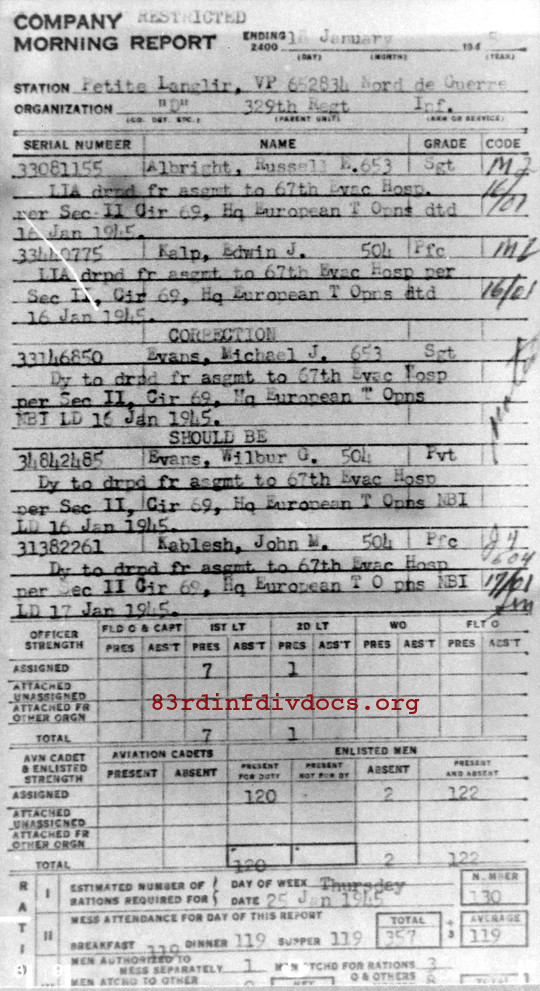 COMPANY RESTRICTED
MORNING REPORT ENDING 2400 18 January 194 5
(DAY) (MONTH) (YEAR)
STATION Petite Langlir, VP 652834 Nord de Guerre
ORGANIZATION "D" 329th Regt Inf.
(CO. DET. ETC.) (PARENT UNIT) (ARM OR SERVICE)
SERIAL NUMBER NAME GRADE CODE
33081155 Albright, Russell E. 653 Sgt
LIA drpd fr asgmt to 67th Evac Hosp. 16/
per Sec II Cir 69, Hq European T Opns dtd 01
16 Jan 1945.
33440775 Kalp, Edwin J. 504 Pfc
LIA drpd fr asgmt to 67th Evac Hosp per
Sec II, Cir 69, Hq European T Opns dtd 16/01
16 Jan 1945.
CORRECTION
33146850 Evans, Michael J. 653 Sgt
Dy to drpd fr asgmt to 67th Evac Hosp
per Sec II, Cir 69, Hq European T Opns
NBI LD 16 Jan 1945.
SHOULD BE
34842485 Evans, Wilbur G. 504 Pvt
Dy to drpd fr asgmt to 67th Evac Hosp
per Sec II, Cir 69, Hq European T Opns NBI
LD 16 Jan 1945.
31382261 Kablesh, John M. 504 Pfc
Dy to drpd fr asgmt to 67th Evac Hosp 504
per Sec II Cir 69, Hq European T O pns NBI 17/01
LD 17 Jan 1945.
OFFICER STRENGTH FLD O & CAPT 1ST LT 2D LT WO FLT O
PRES ABS'T PRES ABS'T PRES ABS'T PRES ABS'T PRES ABS'T
ASSIGNED 7 1
ATTACHED UNASSIGNED
ATTACHED FR OTHER ORGN
83rdinfdivdocs.org
TOTAL 7 1
AVN CADET & ENLISTED STRENGTH AVIATION CADETS ENLISTED MEN
PRESENT ABSENT PRESENT FOR DUTY PRESENT NOT FOR DY ABSENT PRESENT AND ABSENT
ASSIGNED 120 2 122
ATTACHED UNASSIGNED
ATTACHED FR OTHER ORGN
TOTAL 120 2 122
RATI
I ESTIMATED NUMBER OF RATIONS REQUIRED FOR DAY OF WEEK Thursday NUMBER
DATE 25 Jan 1945 130
II MESS ATTENDANCE FOR DAY OF THIS REPORT TOTAL ÷ 3 AVERAGE
BREAKFAST 119 DINNER 119 SUPPER 119 357 119
MEN AUTHORIZED TO MESS SEPARATELY 1 MEN ATCHD FOR RATIONS 3
MEN ATCHD TO OTHER O & OTHERS 8
NET TOTAL